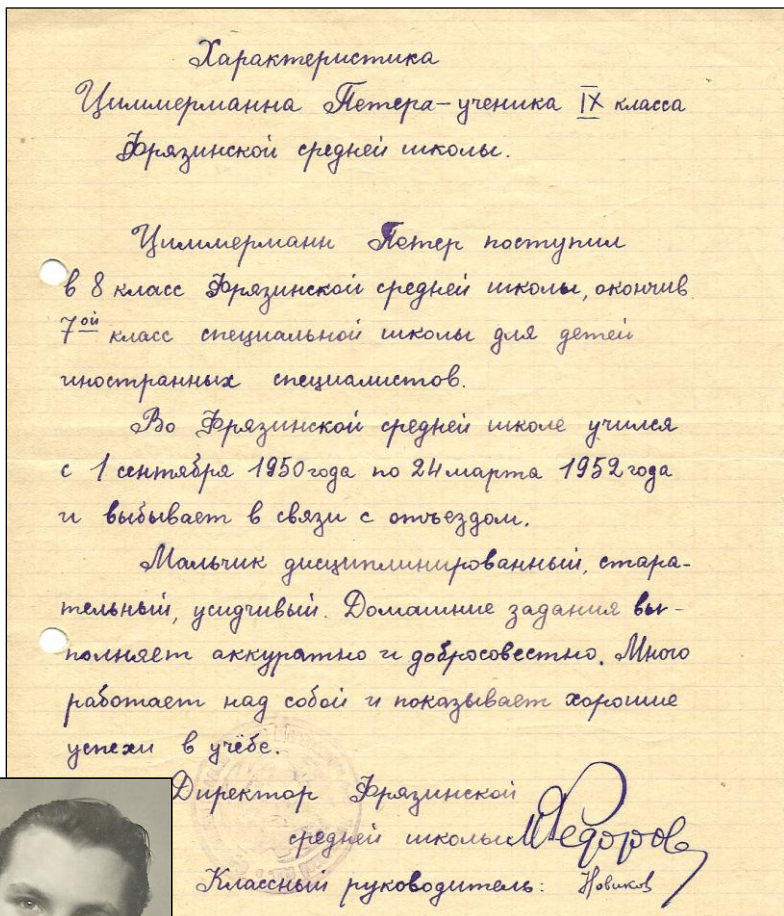 Характеристика
Циммерманна Петера – ученика IX класса
Фрязинской средней школы.
Циммерманн Петер поступил
в 8 класс Фрязинской средней школы, окончив
7ой класс специальной школы для детей
иностранных специалистов.
Во Фрязинской средней школе учился
с 1 сентября 1950 года по 24 марта 1952 года
и выбывает в связи с отъездом.
Мальчик дисциплинированный, стара-
тельный, усидчивый. Домашние задания вы-
полняет аккуратно и добросовестно. Много
работает над собой и показывает хорошие
успехи в учёбе.
Директор Фрязинской
средней школы МФедоров
Классный руководитель: Новиков